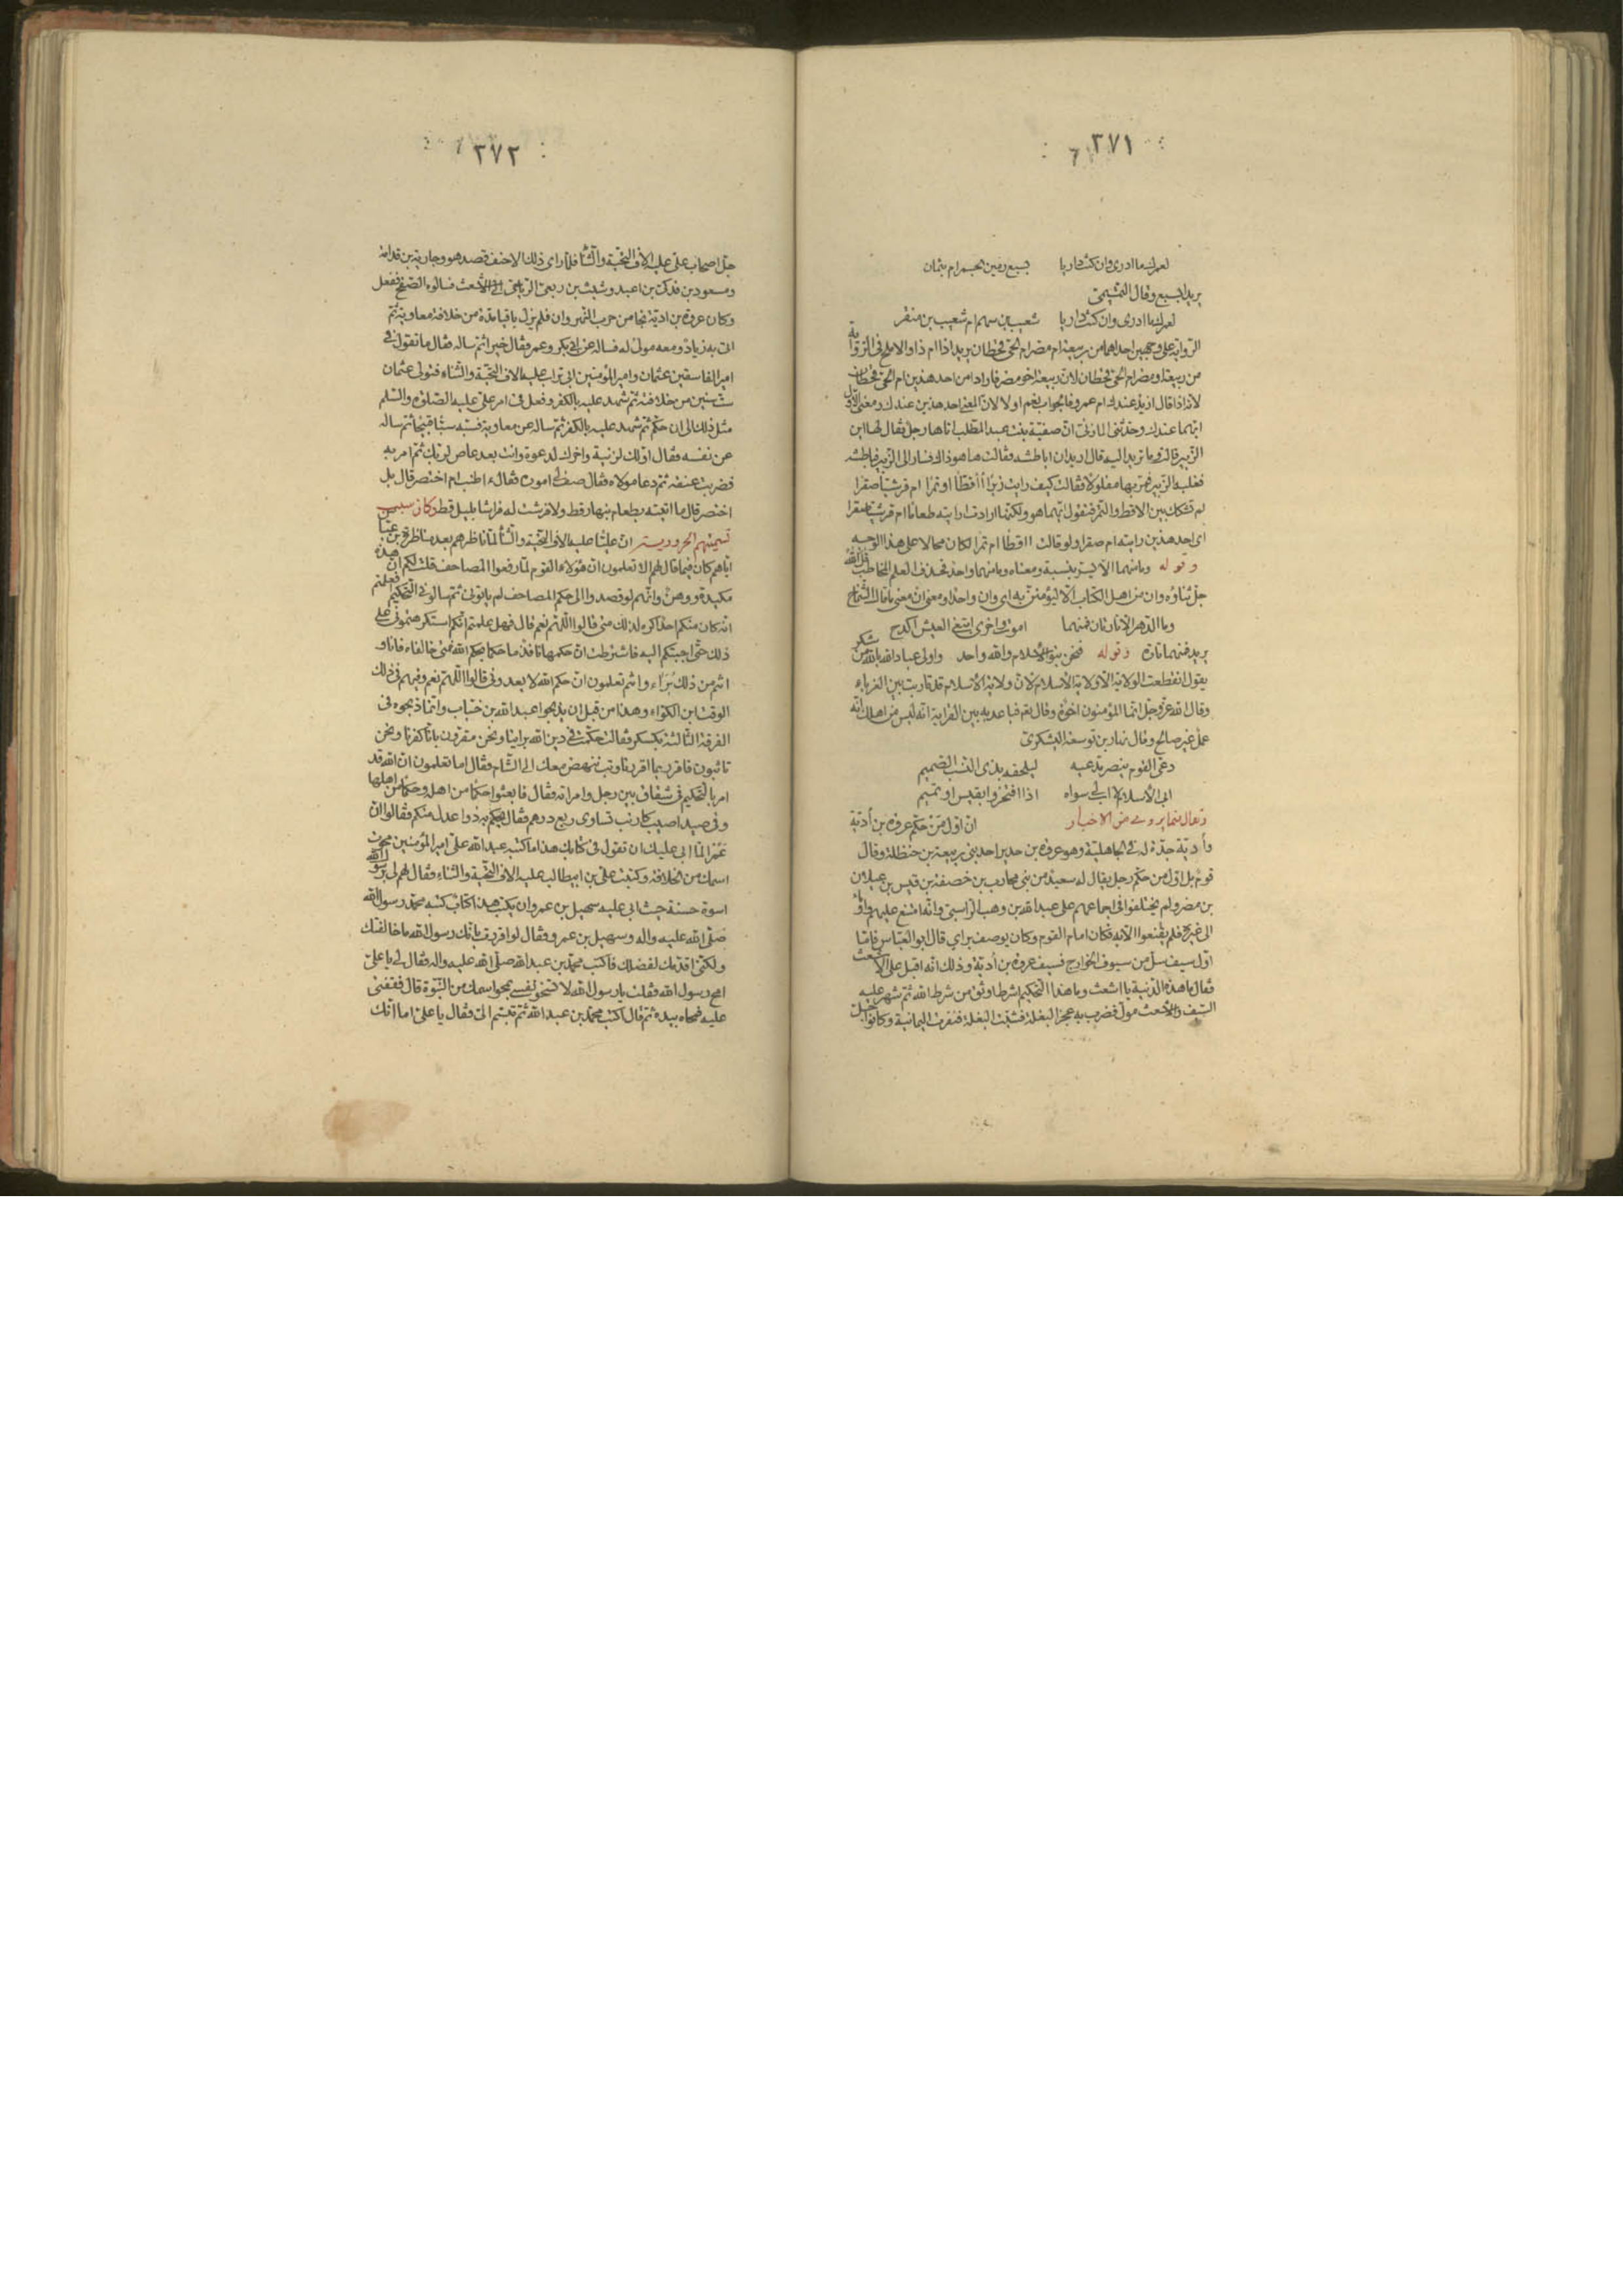 ٣٧١
لعمرك ما ادرى وان كنت داريا بسبع رمين الجمر ام بثمان
يريد ابسبع وقال التميمى
لعمرك ما ادرى وان كنت داريا شعيب بن سهم ام شعيب بن منقر
الرواية على وجهين احدهما من ربيعة ام مضر ام الحى قحطان يريد اذا ام ذا والاملح فى الرواية
من ربيعة او مضر ام الحى قحطان لان ربيعة اخو مضر فاراد امن احد هذين ام الحى قحطان
لانه اذا قال ازيد عندك ام عمرو فالجواب نعم او لا لان المعنى احد هذين عندك ومعنى الاول
ايهما عندك وحدثنى المازنى ان صفية بنت عبد المطلب اتاها رجل فقال لها اين
الزبير قالت وما تريد اليه قال اريد ان اباطشه فقالت ها هو ذاك فسار الى الزبير فباطشه
فغلبه الزبير فمر بها مفلولا فقالت كيف رايت زبرا أأقطا او تمرا ام قرشيا صقرا
لم تشكك بين الاقط والتمر فتقول ايهما هو ولكنها ارادت ارايته طعاما ام قرشيا صقرا
اى احد هذين رايته ام صقرا ولو قالت ااقطا ام تمرا لكان محالا على هذا الوجه
وقوله وما منهما الا يسر بنسبة ومعناه وما منهما واحد فحذف لعلم المخاطب قال الله
جل ثناؤه وان من اهل الكتاب الا ليؤمنن به اى وان واحد ومعنى ان معنى ما قال الشماخ
وما الدهر الا تارتان فمنهما اموت واخرى ابتغى العيش اكدح
يريد فمنهما تارة وقوله فنحن بنو الاسلام والله واحد واولى عباد الله بالله من شكر
يقول انقطعت الولاية الا ولاية الاسلام لان ولاية الاسلام قد قاربت بين الغرباء
وقال الله عز وجل انما المؤمنون اخوة وقال نعم فباعد به بين القرابة انه ليس من اهلك انه
عمل غير صالح وقال نهار بن توسعة اليشكرى
دعى القوم ينصر مدعيه ليلحقه بذى النسب الصميم
ابى الاسلام لا اب لى سواه اذا افتخروا بقيس او تميم
وقال فيما يروى من الاخبار ان اول من حكم عروة بن أدية
وأدية جدة له فى الجاهلية وهو عروة بن حدير احد بنى ربيعة بن حنظلة وقال
قوم بل اول من حكم رجل يقال له سعيد من بنى محارب بن خصفة بن قيس بن عيلان
بن مضر ولم يختلفوا فى اجماعهم على عبد الله بن وهب الراسبى وانه امتنع عليهم واومأ
الى غيره فلم يقنعوا الا به فكان امام القوم وكان يوصف براى قال ابو العباس فاما
اول سيف سل من سيوف الخوارج فسيف عروة بن أدية وذلك انه اقبل على الاشعث
فقال ما هذه الدنية يا اشعث وما هذا التحكيم اشرط اوثق من شرط الله ثم شهر عليه
السيف والاشعث مول فضرب به عجز البغلة فشبت البغلة فنفرت اليمانية وكانوا جل
٣٧٢
جل اصحاب على عليه الاف التحية والثنا فلما راى ذلك الاحنف قصد هو وجارية بن قدامة
ومسعود بن فدكى بن اعبد وشبث بن ربعى الرياحى الى الاشعث فسالوه الصفح ففعل
وكان عروة بن ادية نجا من حرب النهروان فلم يزل باقيا مدة من خلافة معاوية ثم
اتى به زياد ومعه مولى له فساله عن ابى بكر وعمر فقال خيرا ثم ساله فقال ما تقول فى
امير الفاسقين عثمان وامير المؤمنين ابى تراب عليه الاف التحية والثناء فتولى عثمان
ست سنين من خلافته ثم شهد عليه بالكفر وفعل فى امر على عليه الصلوة والسلم
مثل ذلك الى ان حكم ثم شهد عليه بالكفر ثم ساله عن معاوية فسبه سبا قبيحا ثم ساله
عن نفسه فقال اولك لزنية واخرك لدعوة وانت بعد عاص لربك ثم امر به
فضربت عنقه ثم دعا مولاه فقال صف لى اموره فقال ءاطنب ام اختصر قال بل
اختصر قال ما اتيته بطعام بنهار قط ولا فرشت له فراشا بليل قط وكان سبب
تسميتهم الحرورية ان عليا عليه الاف التحية والثنا لما ناظرهم بعد مناظرة بن عباس
اياهم كان فيما قال لهم الا تعلمون ان هؤلاء القوم لما رفعوا المصاحف قلت لكم ان هذه
مكيدة ووهن وانهم لو قصدوا الى حكم المصاحف لم ياتونى ثم سالونى التحكيم افعلتم
انه كان منكم احد اكره لذلك منى قالوا اللهم نعم قال فهل علمتم انكم استكرهتمونى على
ذلك حتى اجبتكم اليه فاشترطت ان حكمهما نافذ ما حكما بحكم الله فمتى خالفاه فانا و
انتم من ذلك بَرَاء وانتم تعلمون ان حكم الله لا يعدونى قالوا اللهم نعم وفيهم فى ذلك
الوقت ابن الكواء وهذا من قبل ان يذبحوا عبد الله بن خباب وانما ذبحوه فى
الفرقة الثالثة بكسكر فقالت حكمت فى دين الله براينا ونحن مقرون بانا كفرنا ونحن
تائبون فاقرر بما اقررنا وتب ننهض معك الى الشام فقال اما تعلمون ان الله قد
امر بالتحكيم فى شقاق بين رجل وامراته فقال فابعثوا حكما من اهله وحكما من اهلها
وفى صيد اصيب كارنب تساوى ربع درهم فقال يحكم به ذوا عدل منكم فقالوا ان
عَمْرا لما ابى عليك ان تقول فى كتابك هذا ما كتبه عبد الله على امير المؤمنين محوت
اسمك من الخلافة وكتبت على بن ابيطالب عليه الاف التحية والثناء فقال لهم لى برسول الله
اسوة حسنة حيث ابى عليه سهيل بن عمرو ان يكتب هذا كتاب كتبه محمد رسول الله
صلى الله عليه واله وسهيل بن عمرو وقال لو اقررت بانك رسول الله ما خالفتك
ولكنى اقدمك لفضلك فاكتب محمد بن عبد الله صلى الله عليه واله فقال لى يا على
امح رسول الله فقلت يا رسول الله لا تسخو نفسى بمحو اسمك من النبوة قال فقفنى
عليه فمحاه بيده ثم قال اكتب محمد بن عبد الله ثم تبسم الى وقال يا على اما انك